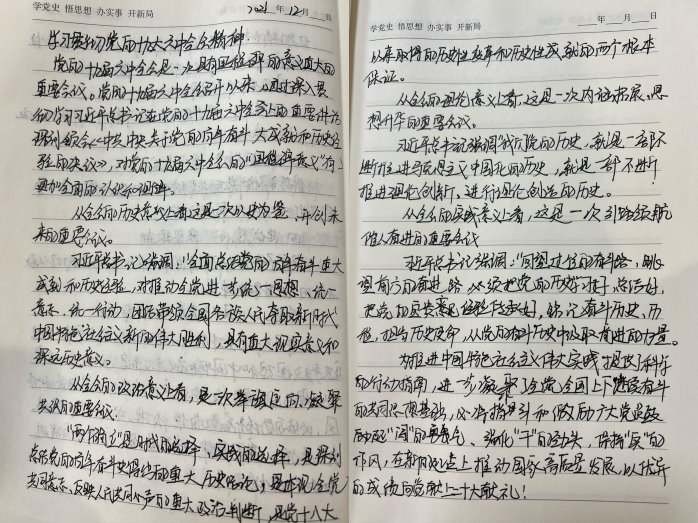 学党史 悟思想 办实事 开新局
2021年12月 日
学习贯彻党的十九大六中全会精神
党的十九届六中全会是一次具有里程碑的意义重大的
重要会议。党的十九届六中全会召开以来，通过深入贯
彻学习习近平总书记在党的十九届六中全会上的重要讲话
深刻领会《中共中央关于党的百年奋斗重大成就和历史经
验的决议》，对党的十九届六中全会的"里程碑意义"有了
更加全面的认识和理解。
从全会的历史意义上看，这是一次以史为鉴、开创未
来的重要会议。
习近平总书记强调："全面总结党的百年奋斗重大
成就和历史经验，对推动全党进一步统一思想、统一
意志、统一行动，团结带领全国各族人民夺取新时代
中国特色社会主义新的伟大胜利，具有重大现实意义和
深远历史意义。
从全会的政治意义上看，是一次举旗定向、凝聚
共识的重要会议
"两个确立"是时代的选择，实践的选择，是深刻
总结党的百年奋斗史得出的重大历史结论，是体现全党
共同意志、反映人民共同心声的重大政治判断，是党十八大
学党史 悟思想 办实事 开新局
年 月 日
以来取得的历史性变革和历史性成就的两个根本
保证。
从全会的理论意义上看，这是一次内涵拓展、思
想升华的重要会议。
习近平总书记强调"我们党的历史，就是一部不
断推进马克思主义中国化的历史，就是一部不断
推进理论创新、进行理论创造的历史。
从全会的实践意义上看，这是一次引路领航
催人奋进的重要会议
习近平总书记强调："回望过往的奋斗路，眺
望前方的奋进路，必须把党的历史学习好、总结好，
把党的宝贵经验传承好，铭记奋斗历史，历
程，担当历史使命，从党的奋斗历史中汲取奋进的力量。
为推进中国特色社会主义伟大实践提供了科学
的行动指南，进一步凝聚了全党全国上下继续奋斗
的共同思想基础，必将指引和激励广大党员鼓
励起"闯"的勇气、强化"干"的劲头、保持"实"的
作风，在新的起点上推动国家高质量发展，以优异
的成绩向党献上二十大献礼！